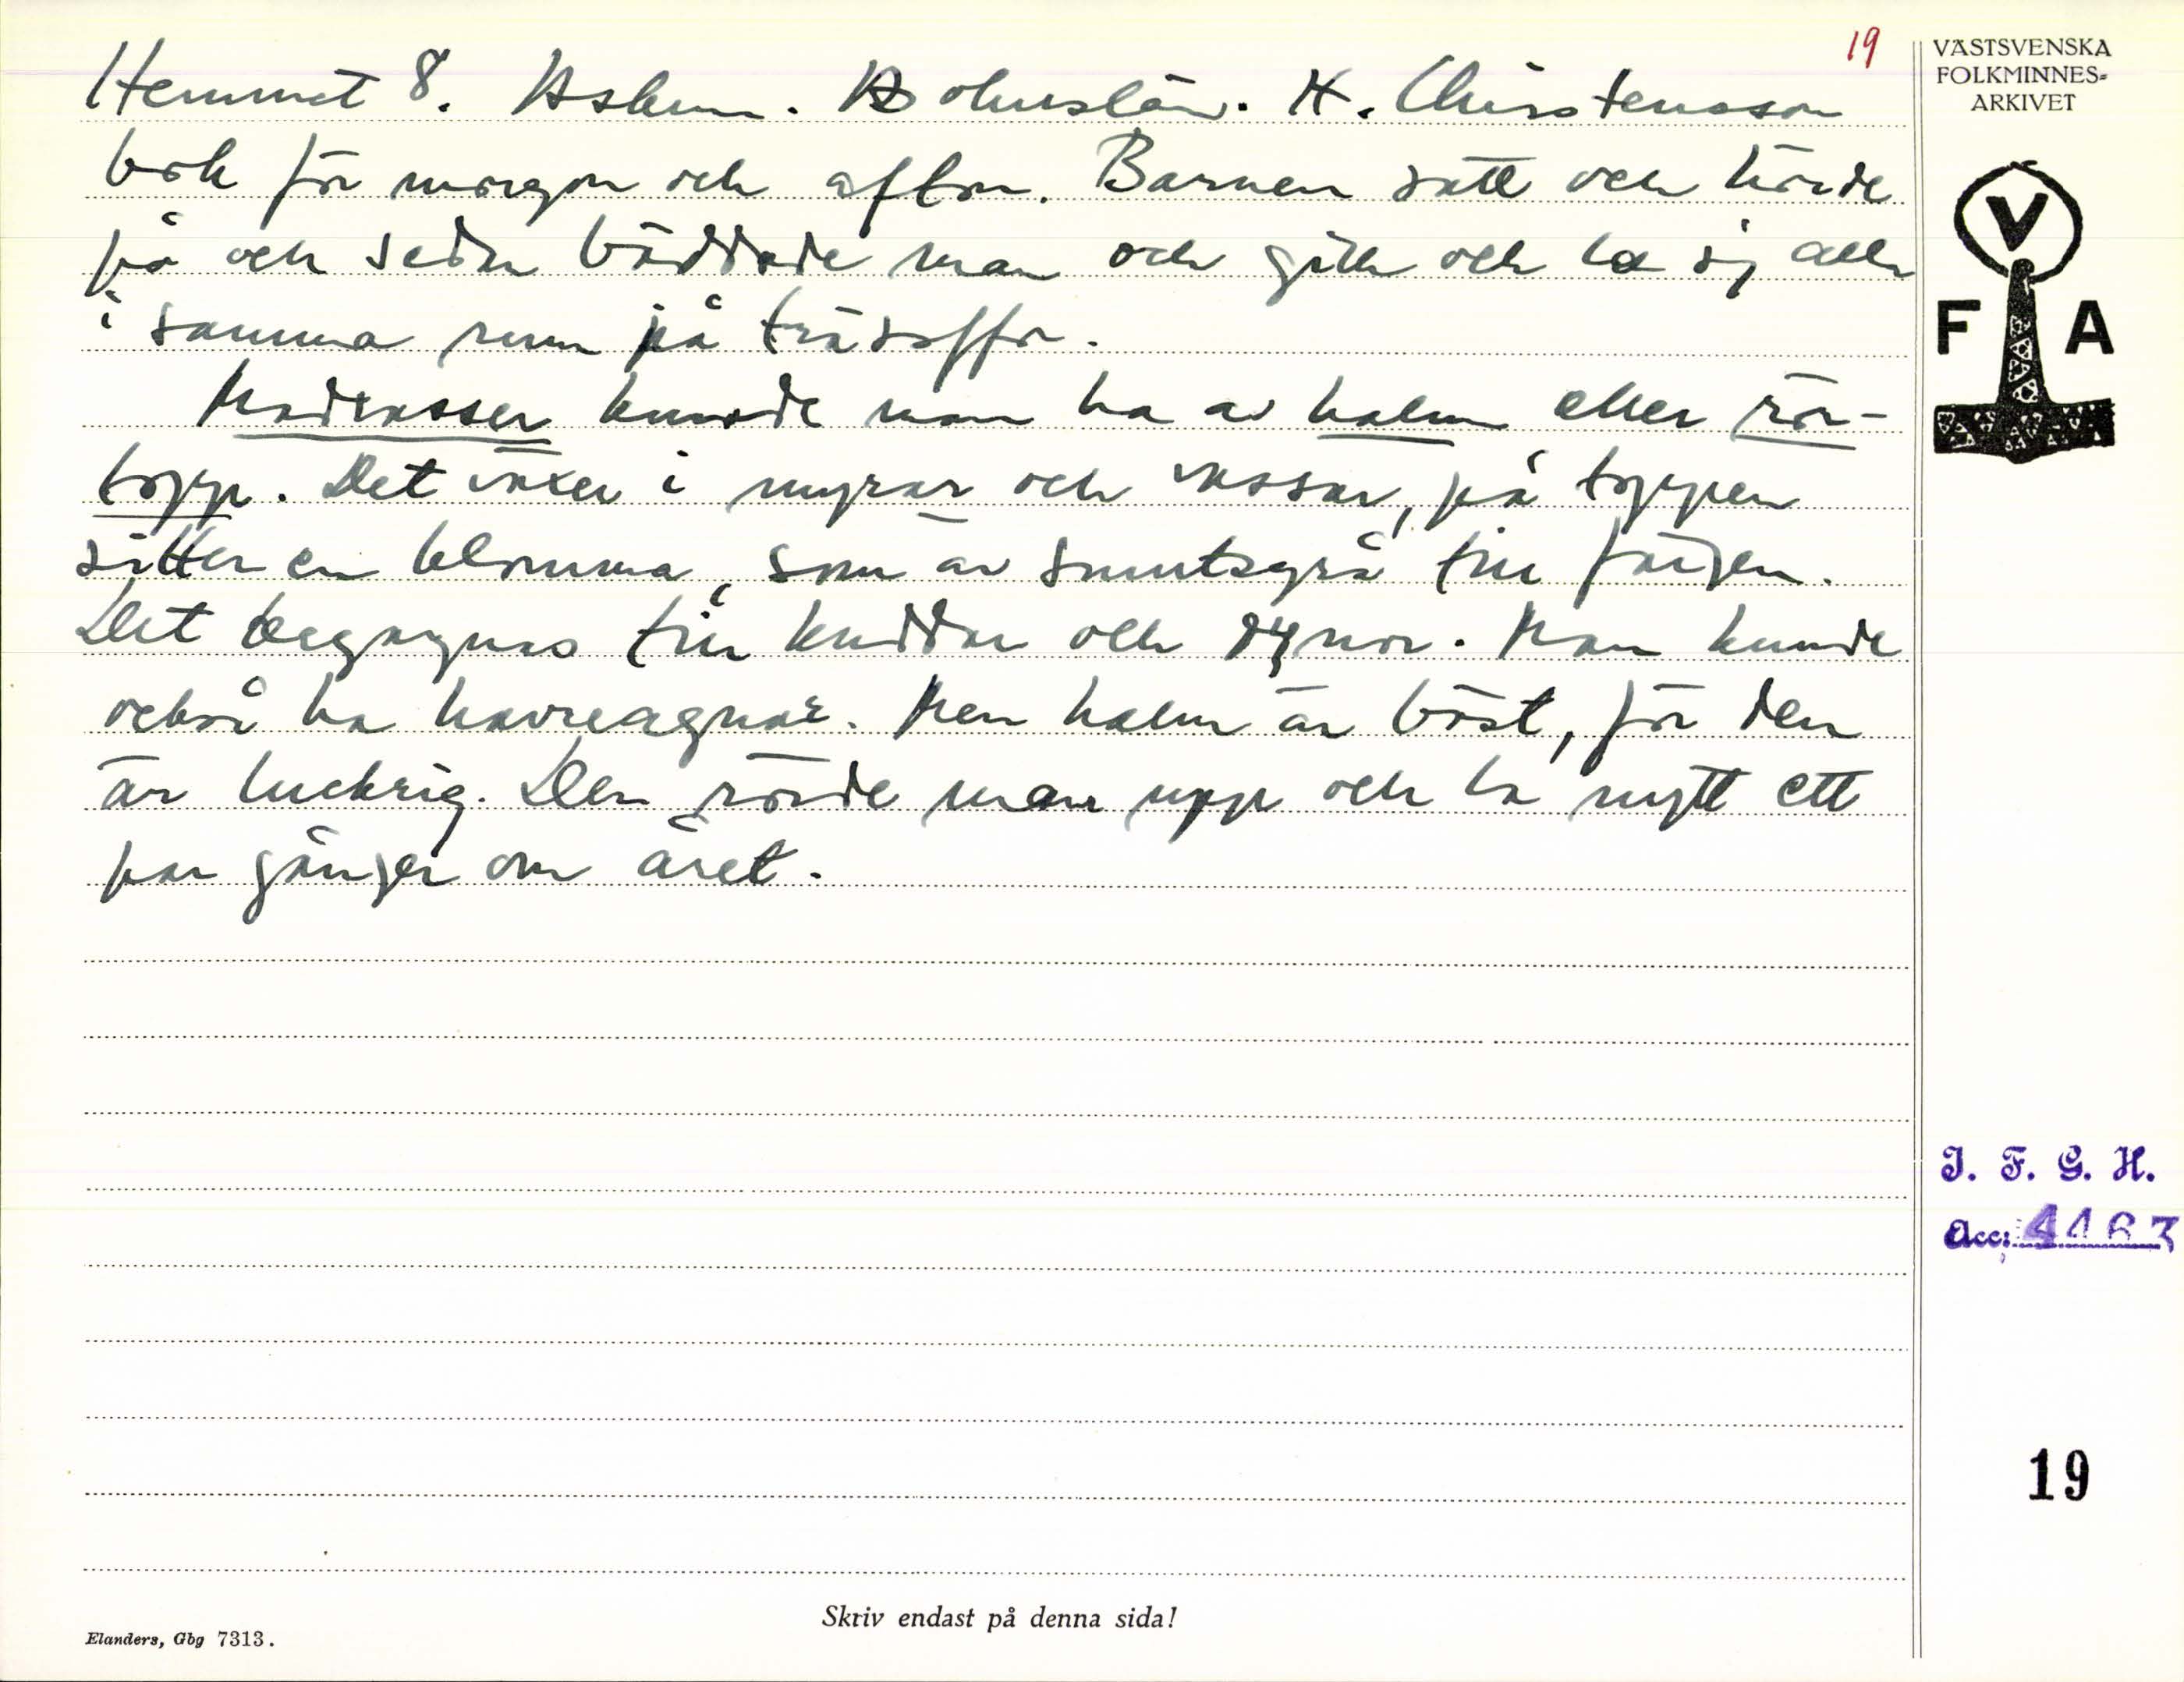 19
Hemmet 8. Askum. Bohuslän. H. Christensson
bok för morgon och afton. Barnen satt och hörde
på och sedan bäddade man och gick och la sig alla
i samma rum på träsoffor.
Madrasser kunde man ha av halm eller rör-
topp. Det växer i myrar och vassar, på toppen
sitter en blomma, som är smutsgrå till färgen.
Det begagnas till kuddar och dynor. Man kunde
också ha havreagnar. Men halm är bäst, för den
är luckrig. Den rörde man upp och la nytt ett
par gånger om året.
VÄSTSVENSKA
FOLKMINNES=
ARKIVET
V
F A
I. F. G. H.
Acc: 4463
19
Skriv endast på denna sida!
Elanders, Gbg 7313.